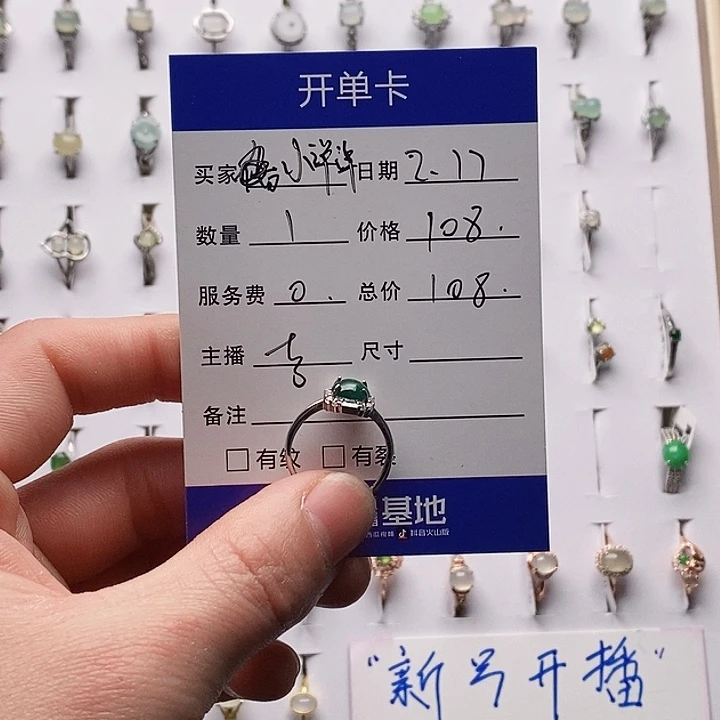 开单卡
买家 小洋洋 日期 2.17
数量 1 价格 108.
服务费 0. 总价 108.
主播 尺寸
备注
□ 有纹 □ 有裂
基地
抖音火山版
"新号开播"